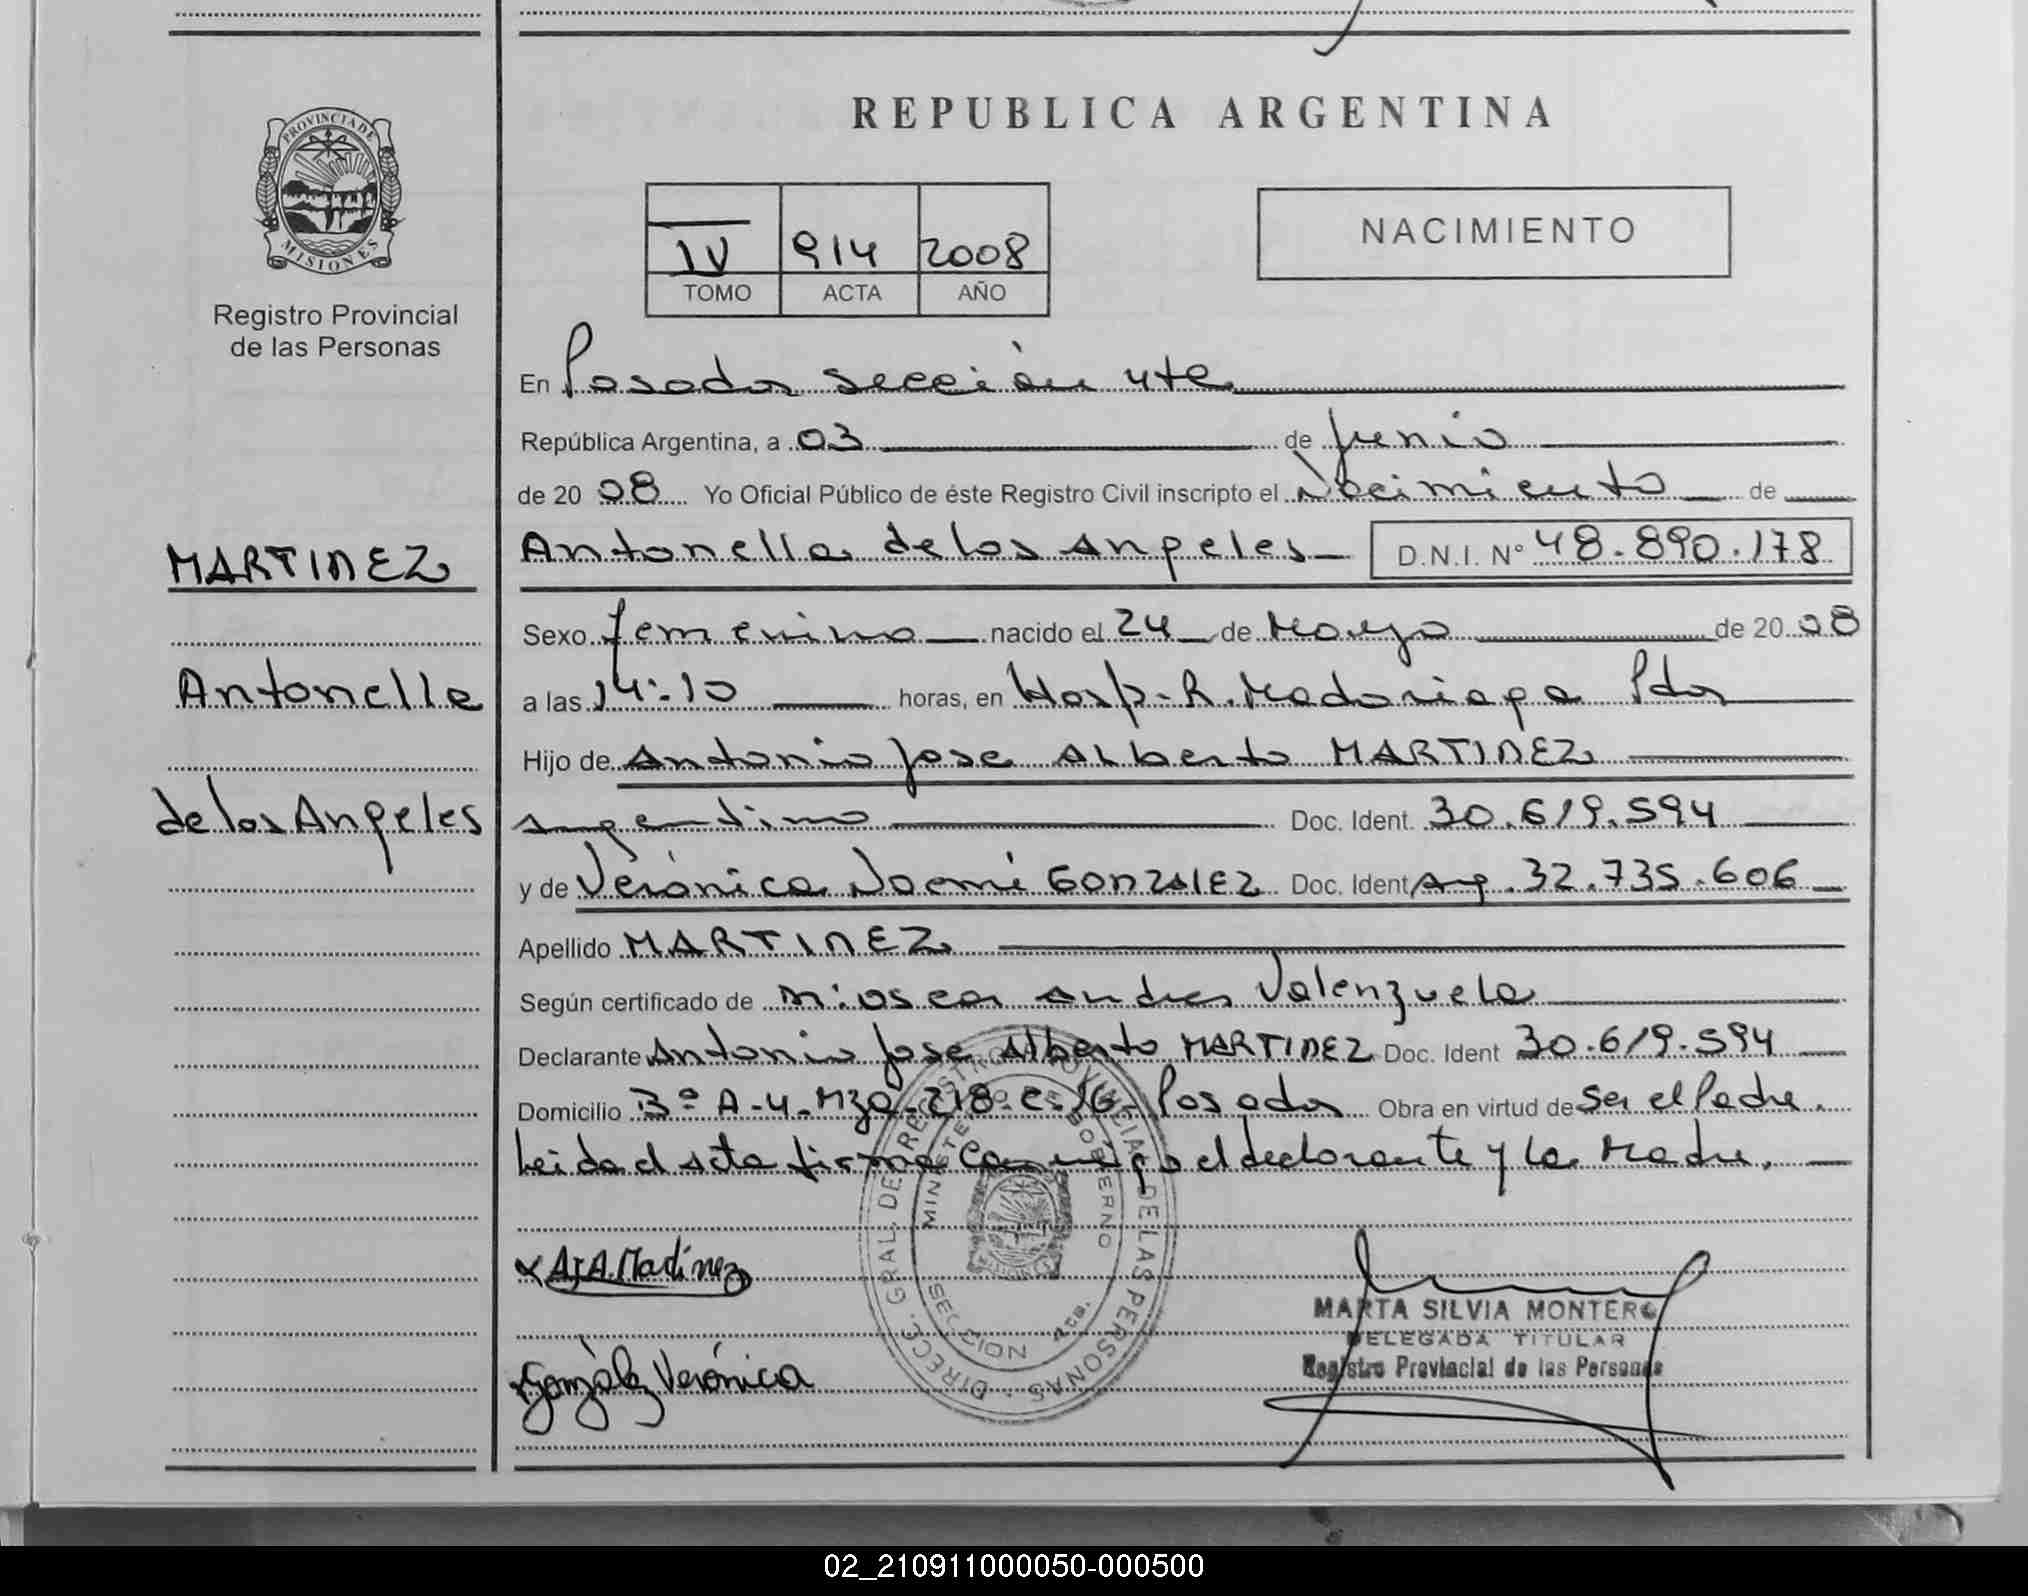 REPUBLICA ARGENTINA
PROVINCIA DE
MISIONES
Registro Provincial
de las Personas
IV 914 2008
TOMO ACTA AÑO
NACIMIENTO
En Posadas sección 4ta
República Argentina, a 03 de Junio
de 20 08 Yo Oficial Público de éste Registro Civil inscripto el Nacimiento de
MARTINEZ
Antonella
de los Angeles
Antonella de los Angeles D.N.I. N° 48.890.178
Sexo femenino nacido el 24 de Mayo de 20 08
a las 14:10 horas, en Hosp. R. Madariaga Pdas
Hijo de Antonio Jose Alberto MARTINEZ
argentino Doc. Ident. 30.619.594
y de Verónica Noemí GONZALEZ Doc. Ident Arg. 32.735.606
Apellido MARTINEZ
Según certificado de Andres Valenzuela
Declarante Antonio Jose Alberto MARTINEZ Doc. Ident 30.619.594
Domicilio B° A-4-Mza-218-C-16-Posadas Obra en virtud de ser el Padre.
Leida el acta firma conmigo el declarante y la Madre.
A.J.A. Martínez
González Verónica
DIRECC. GRAL. DE REGISTRO PROVINCIAL DE LAS PERSONAS
MINISTERIO DE GOBIERNO
SECCION 4ta.
MARTA SILVIA MONTERO
DELEGADA TITULAR
Registro Provincial de las Personas
02_210911000050-000500